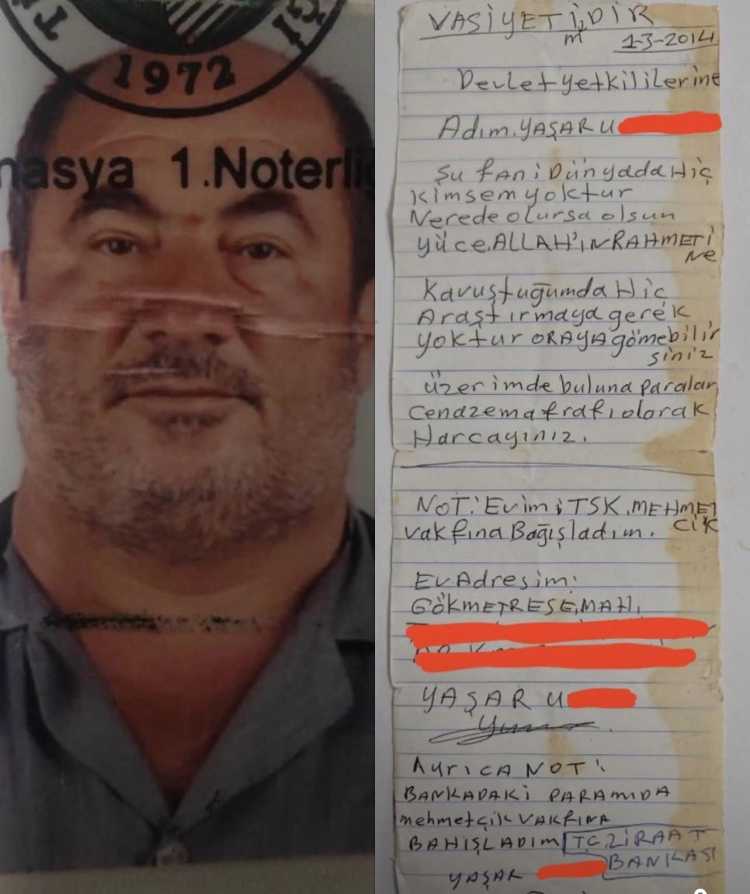 1972
masya 1.Noterli
VASİYETİMDİR
1-3-2014
Devlet yetkililerine
Adım.YAŞAR U
Şu fani Dünyada Hiç
kimsem yoktur
Nerede olursa olsun
yüce.ALLAH'IN RAHMETİ
Ne
Kavuştuğumda Hiç
Araştırmaya gerek
yoktur ORAYA gömebilir
siniz
üzerimde buluna paralar
Cenazemafrafı olarak
Harcayınız.
NOT: Evimi TSK.MEHMET
CİK
vakfına Bağışladım.
Ev Adresim:
GÖKMETRESE.MAH.
YAŞAR U
Ayrıca NOT:
BANKADAKİ PARAMIDA
mehmetçik VAKFINA
BAHIŞLADIM TC.ZİRAAT
BANKASI
YAŞAR